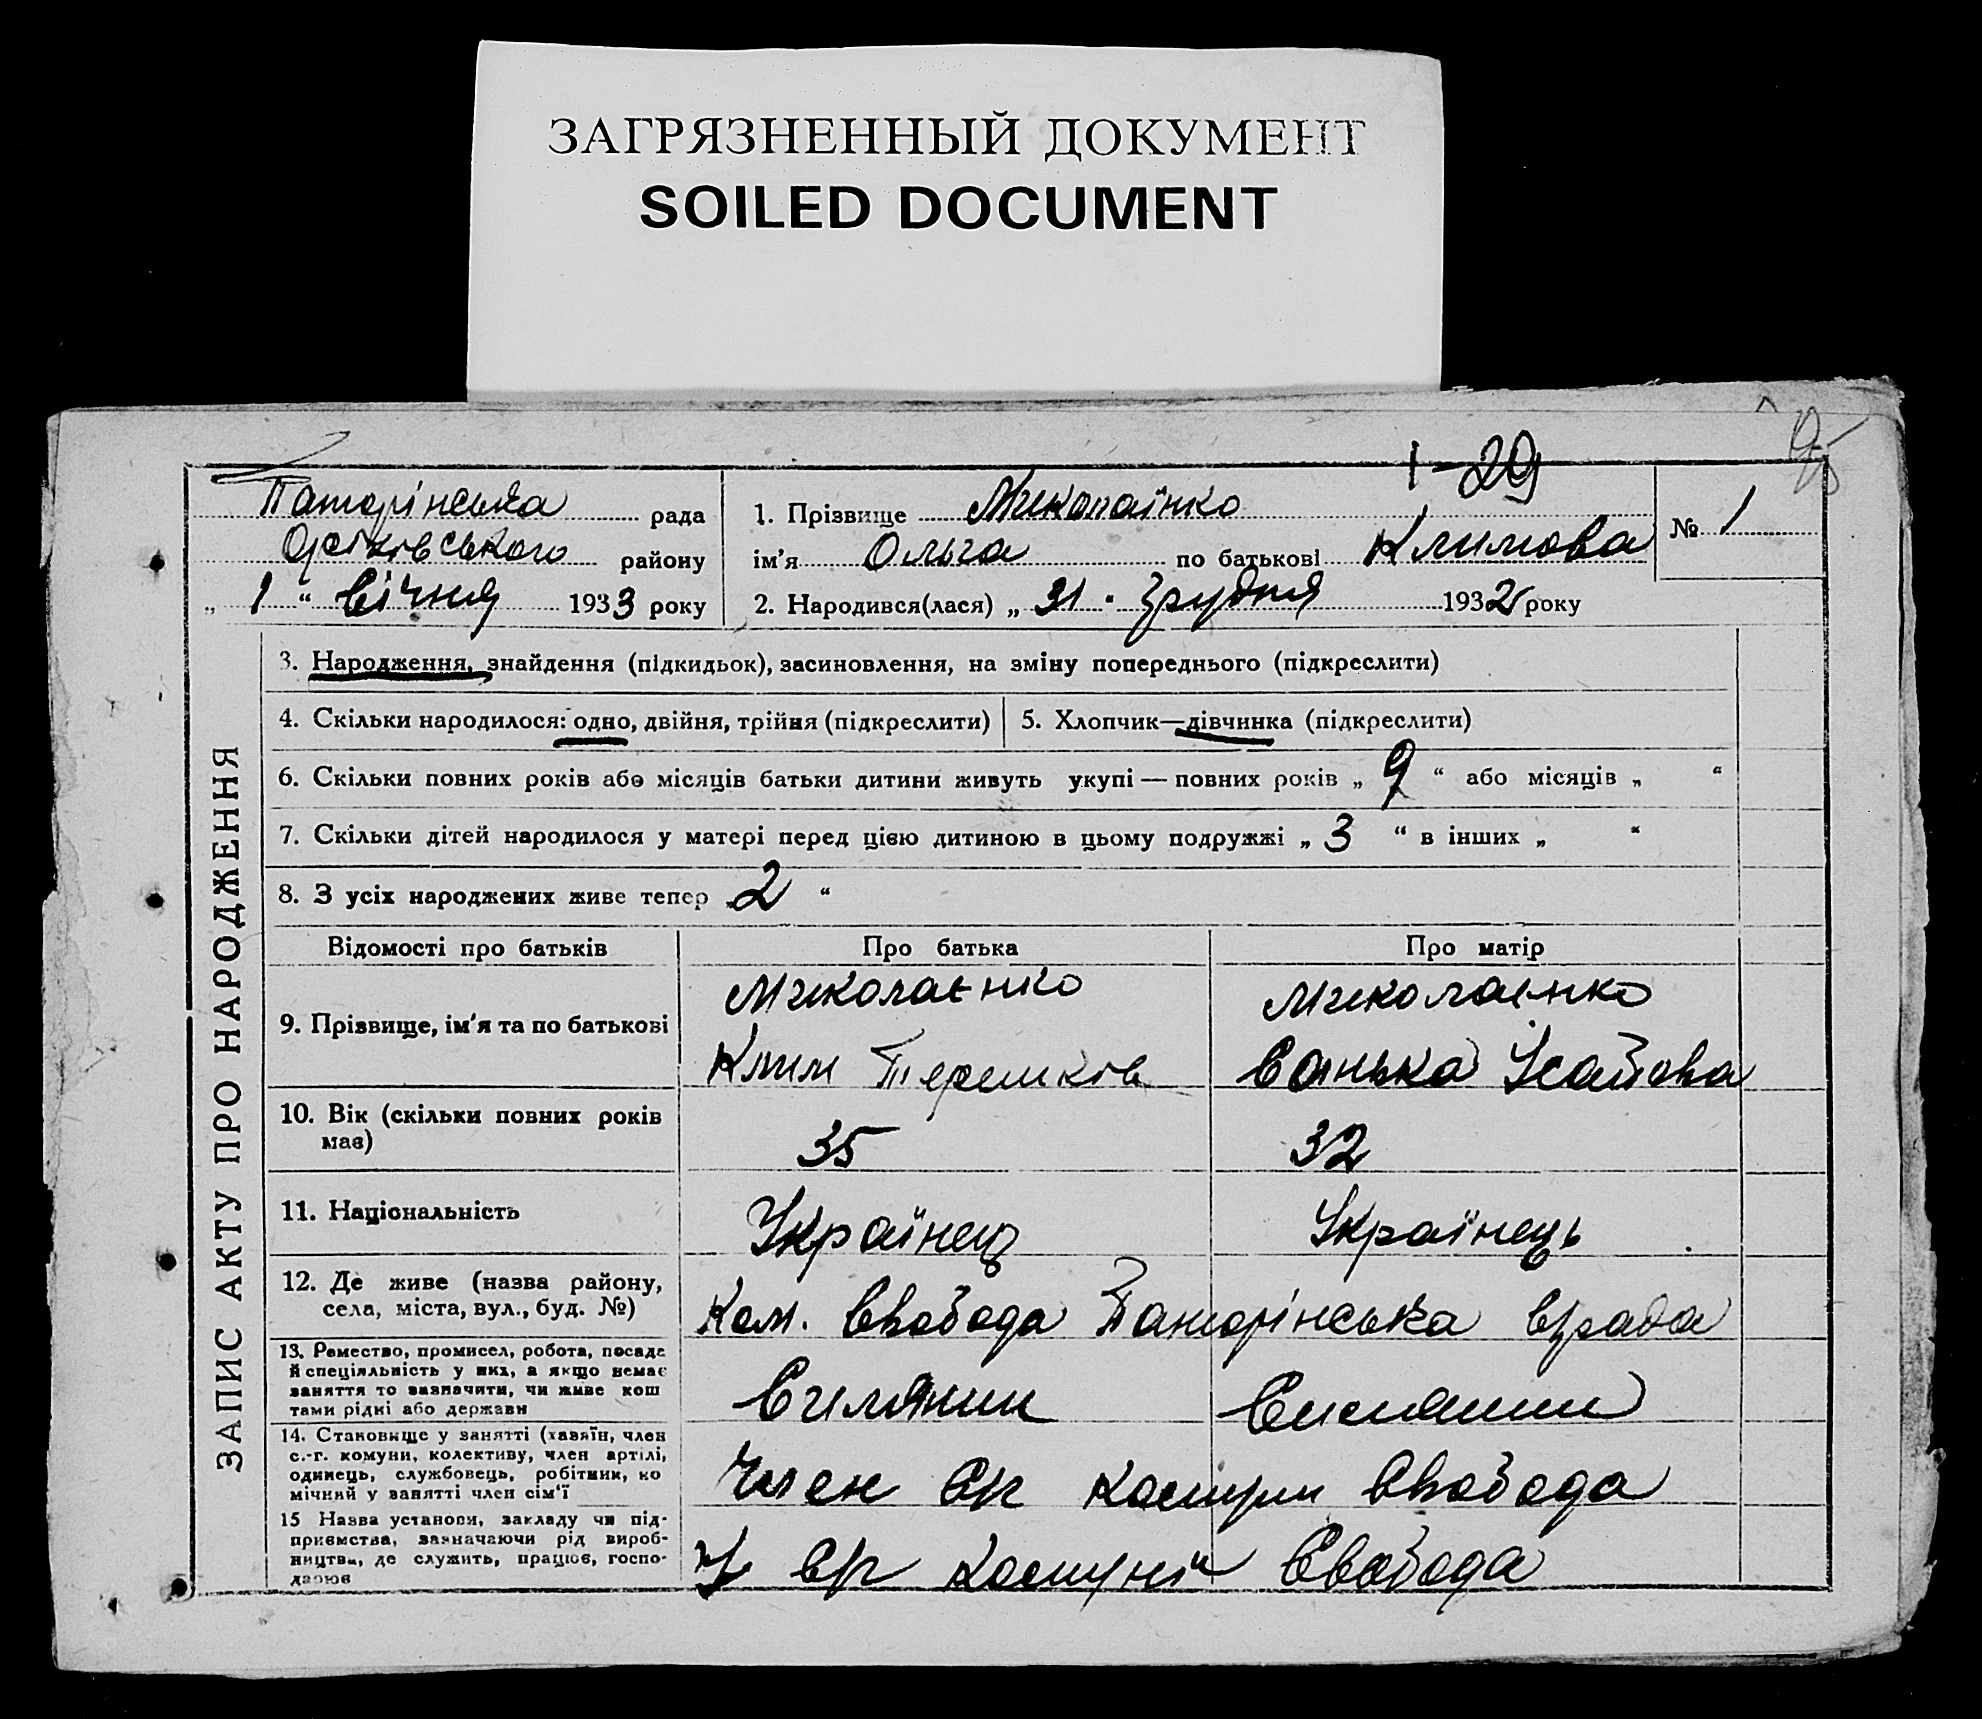 ЗАГРЯЗНЕННЫЙ ДОКУМЕНТ
SOILED DOCUMENT
1-29
рада
Оріхівського району
„ 1 “ Січня 1933 року
1. Прізвище Миколаїнко
ім'я Ольга по батькові Климова
2. Народився(лася) „ 31 " Грудня 1932 року
№ 1
ЗАПИС АКТУ ПРО НАРОДЖЕННЯ
3. Народження, знайдення (підкидьок), засиновлення, на зміну попереднього (підкреслити)
4. Скільки народилося: одно, двійня, трійня (підкреслити)
5. Хлопчик—дівчинка (підкреслити)
6. Скільки повних років або місяців батьки дитини живуть укупі — повних років „ 9 “ або місяців „ “
7. Скільки дітей народилося у матері перед цією дитиною в цьому подружжі „ 3 “ в інших „ “
8. З усіх народжених живе тепер „ 2 “
Відомості про батьків
Про батька
Про матір
9. Прізвище, ім'я та по батькові
Миколаєнко
Клим
Миколаєнко
Санька Ісаіова
10. Вік (скільки повних років
має)
35
32
11. Національність
Українец
Українець
12. Де живе (назва району,
села, міста, вул., буд. №)
Ком. Свобода
13. Ремество, промисел, робота, посада
й спеціяльність у них, а якщо немає
заняття то зазначити, чи живе кош
тами рідні або держави
14. Становище у занятті (хазяїн, член
с.-г. комуни, колективу, член артілі,
одинець, службовець, робітник, по
мічний у занятті член сім'ї
Член Ср Комуни Свобода
15 Назва установи, закладу чи під-
приємства, зазначаючи рід вироб-
ництва, де служить, працює, госпо-
дарює
У ср Комуні Свобода